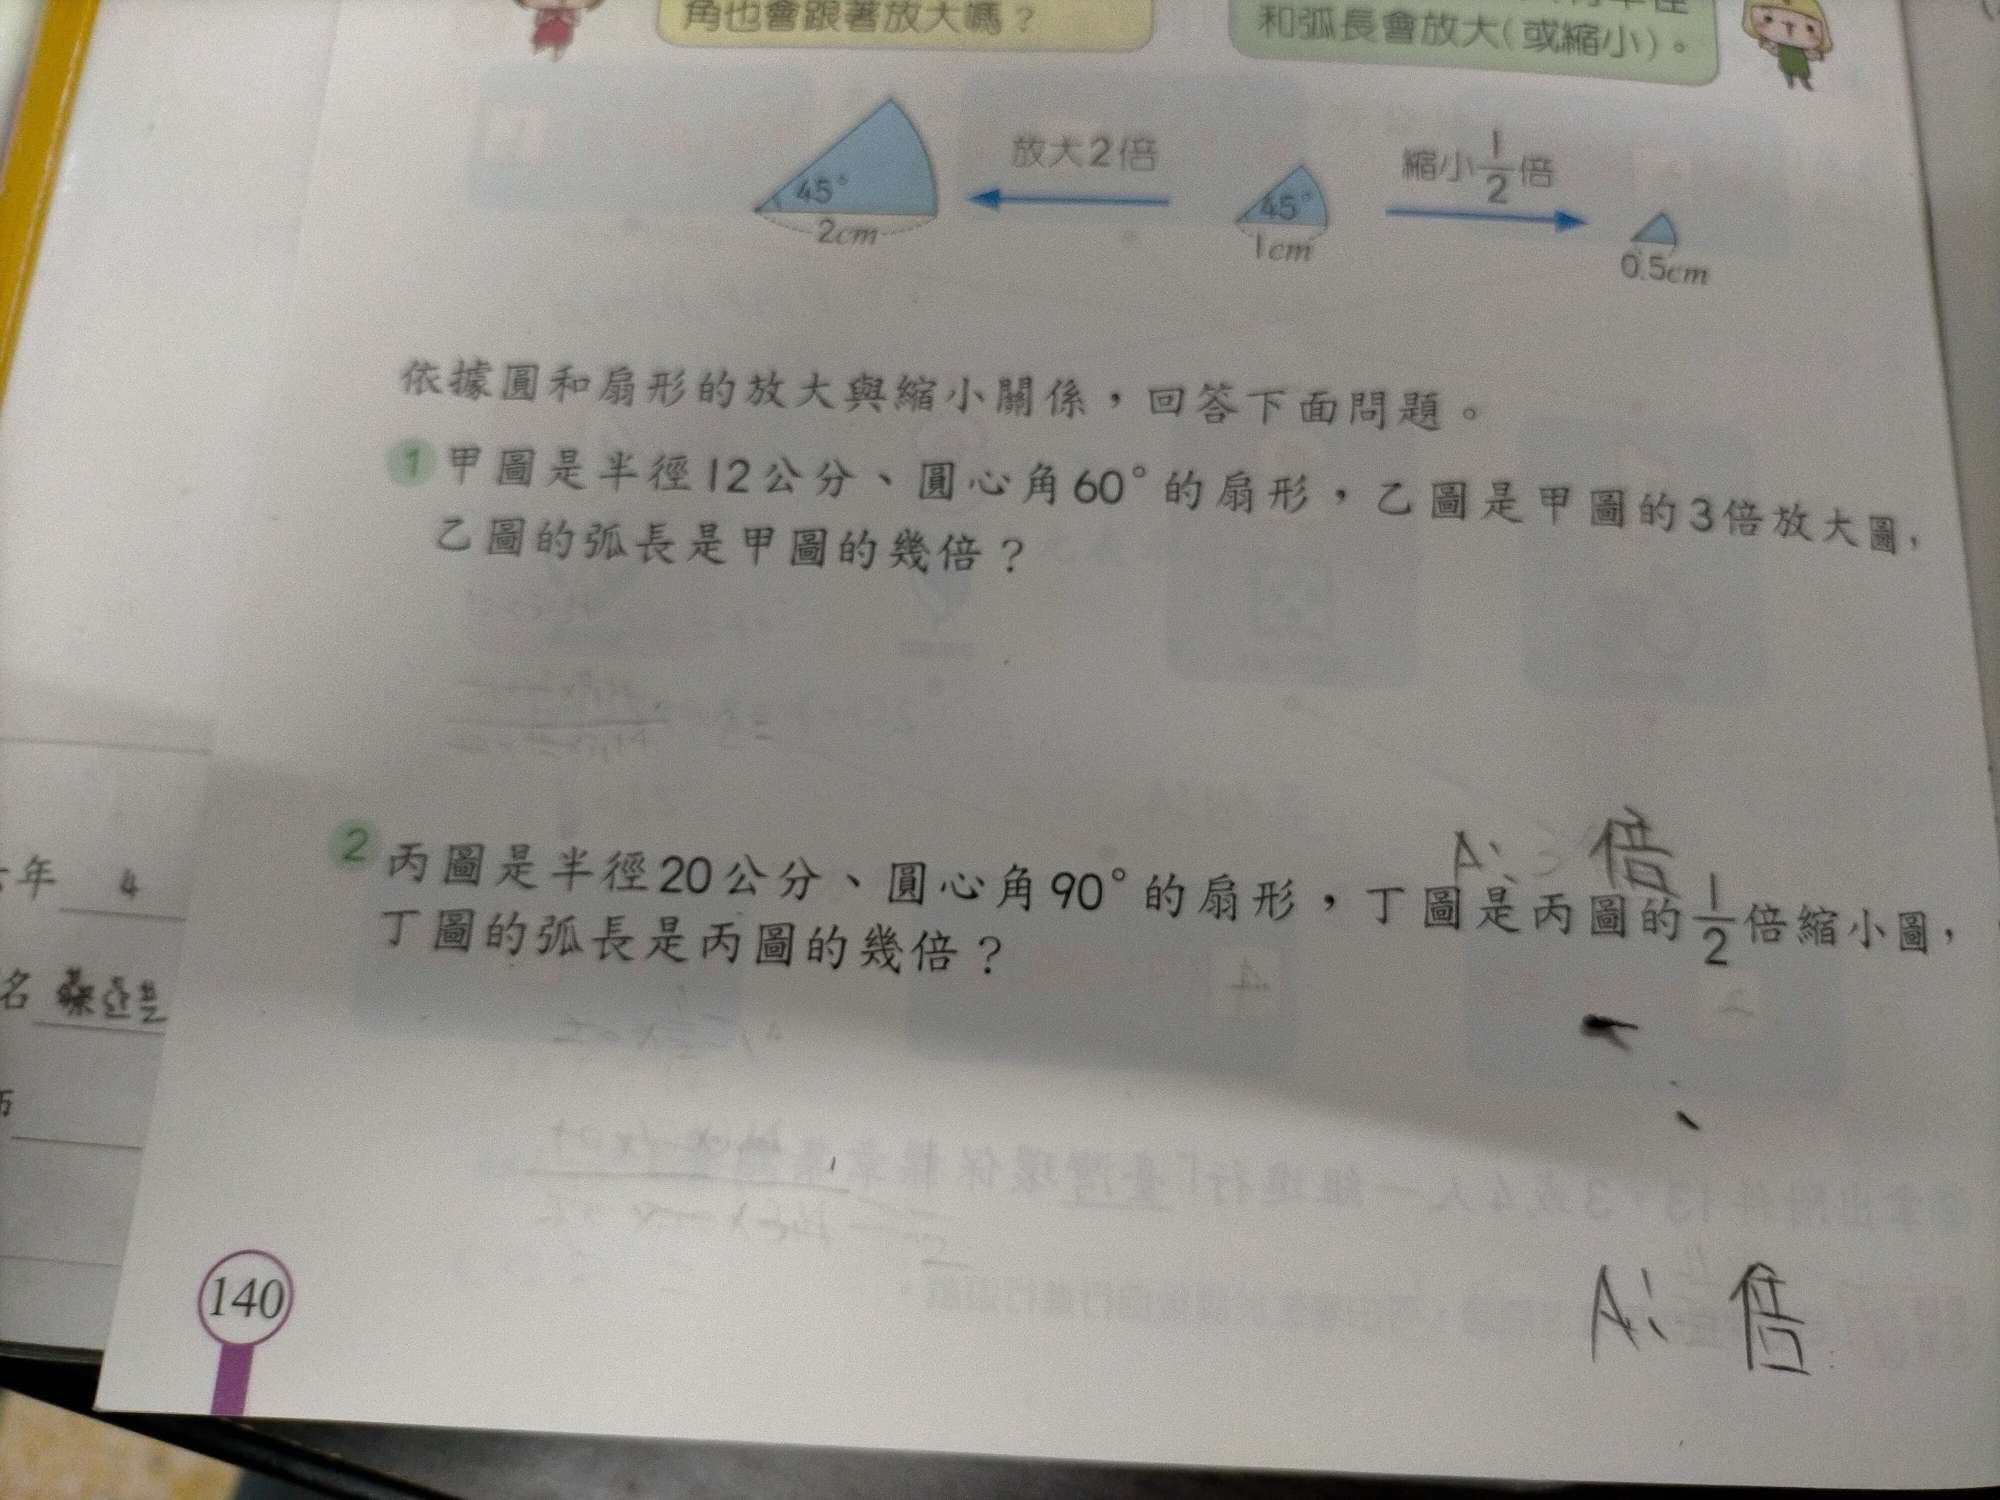 角也會跟著放大嗎？
和弧長會放大(或縮小)。
45°
2cm
放大2倍
45°
1cm
縮小1/2倍
0.5cm
依據圓和扇形的放大與縮小關係，回答下面問題。
1 甲圖是半徑12公分、圓心角60°的扇形，乙圖是甲圖的3倍放大圖，
乙圖的弧長是甲圖的幾倍？
A: 3 倍
2 丙圖是半徑20公分、圓心角90°的扇形，丁圖是丙圖的1/2倍縮小圖，
丁圖的弧長是丙圖的幾倍？
A: 倍
年 4
名
140